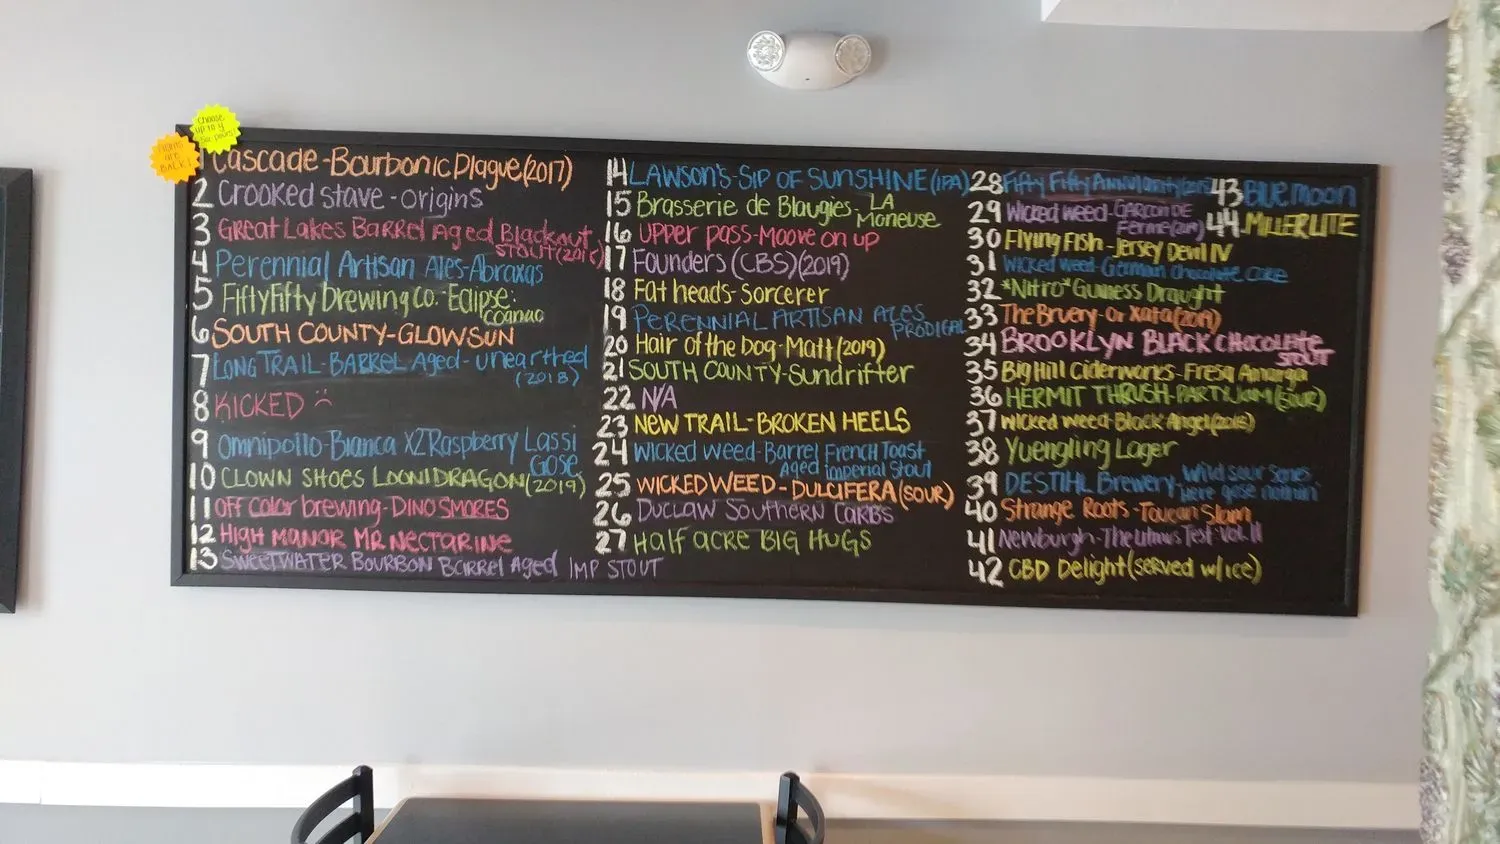 Choose
up to 4
flights are
BACK!
1 Cascade-Bourbonic Plague (2017)
2 Crooked Stave - Origins
3 Great Lakes Barrel Aged Blackout
STOUT
4 Perennial Artisan Ales-Abraxas
5 FiftyFifty Brewing Co.-Eclipse:
Cognac
6 SOUTH COUNTY-GLOWSUN
7 LONG TRAIL-BARREL Aged-unearthed
(2018)
8 KICKED
9 Omnipollo-Bianca X2 Raspberry Lassi
Gose
10 CLOWN SHOES LOONIDRAGON (2019)
11 Off Color brewing-DINO SMORES
12 HIGH MANOR MR NECTARINE
13 SWEETWATER BOURBON Barrel Aged IMP STOUT
14 LAWSON'S-SIP OF SUNSHINE (IPA)
15 Brasserie de Blaugies-LA
Moneuse
16 upper pass-Moove on up
17 Founders (CBS) (2019)
18 Fat heads-Sorcerer
19 PERENNIAL ARTISAN ALES
PRODIGAL
20 Hair of the Dog-Matt (2019)
21 SOUTH COUNTY-Sundrifter
22 N/A
23 NEW TRAIL-BROKEN HEELS
24 WICKED WEED-Barrel French Toast
Aged imperial Stout
25 WICKED WEED-DULCIFERA (SOUR)
26 DUCLAW SOUTHERN CARBS
27 Half acre BIG HUGS
28 Fifty Fifty
29 Wicked Weed-GARCON DE
Ferme
30 Flying Fish-Jersey Devil IV
31 Wicked weed-German Chocolate Cake
32 *Nitro* Guiness Draught
33 The Bruery-Or Xata (2019)
34 BROOKLYN BLACK CHOCOLATE
STOUT
35 Big Hill Ciderworks-Fresa Amarga
36 HERMIT THRUSH-PARTY JAM (SOUR)
37 Wicked Weed-Black Angel
38 Yuengling Lager
39 DESTIHL Brewery-Wild Sour Series
here gose nothin'
40 Strange Roots-Toucan Slam
41 Newburgh-The Litmus Test Vol. II
42 CBD Delight (served w/ice)
43 BLUE MOON
44 MILLER LITE